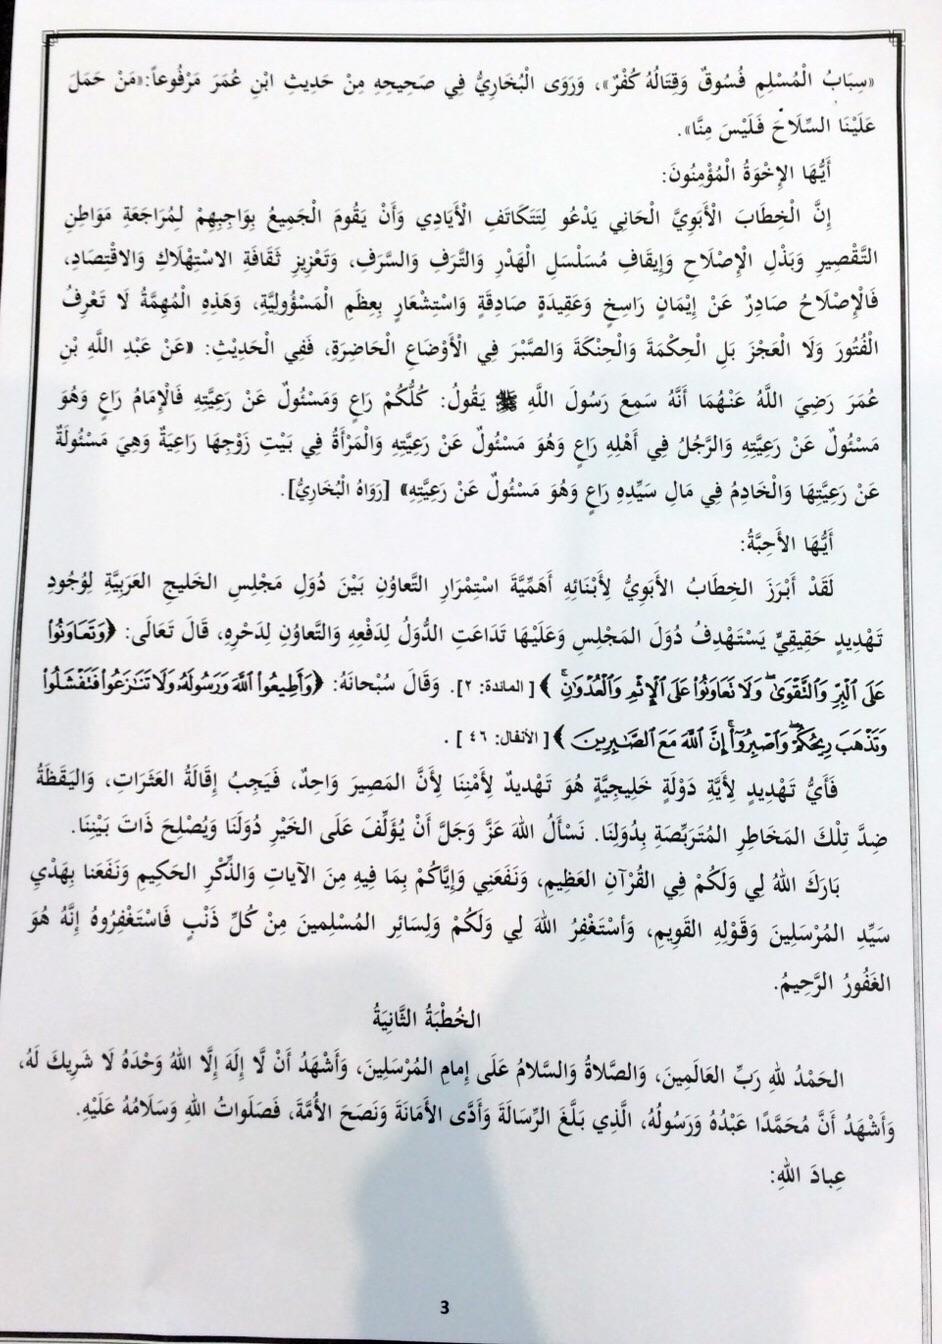 «سِبَابُ الْمُسْلِمِ فُسُوقٌ وَقِتَالُهُ كُفْرٌ»، وَرَوَى الْبُخَارِيُّ فِي صَحِيحِهِ مِنْ حَدِيثِ ابْنِ عُمَرَ مَرْفُوعاً:«مَنْ حَمَلَ
عَلَيْنَا السِّلَاحَ فَلَيْسَ مِنَّا».
أَيُّهَا الإِخْوَةُ الْمُؤْمِنُونَ:
إِنَّ الْخِطَابَ الْأَبَوِيَّ الْحَانِي يَدْعُو لِتَتَكَاتَفِ الْأَيَادِي وَأَنْ يَقُومَ الْجَمِيعُ بِوَاجِبِهِمْ لِمُرَاجَعَةِ مَوَاطِنِ
التَّقْصِيرِ وَبَذْلِ الْإِصْلَاحِ وَإِيقَافِ مُسَلْسَلِ الْهَدْرِ وَالتَّرَفِ وَالسَّرَفِ، وَتَعْزِيزِ ثَقَافَةِ الاسْتِهْلَاكِ وَالاقْتِصَادِ،
فَالْإِصْلَاحُ صَادِرٌ عَنْ إِيْمَانٍ رَاسِخٍ وَعَقِيدَةٍ صَادِقَةٍ وَاسْتِشْعَارٍ بِعِظَمِ الْمَسْؤُولِيَّةِ، وَهَذِهِ الْمُهِمَّةُ لَا تَعْرِفُ
الْفُتُورَ وَلَا الْعَجْزَ بَلِ الْحِكْمَةَ وَالْحِنْكَةَ وَالصَّبْرَ فِي الْأَوْضَاعِ الْحَاضِرَةِ، فَفِي الْحَدِيْثِ: «عَنْ عَبْدِ اللَّهِ بْنِ
عُمَرَ رَضِيَ اللَّهُ عَنْهُمَا أَنَّهُ سَمِعَ رَسُولَ اللَّهِ ﷺ يَقُولُ: كُلُّكُمْ رَاعٍ وَمَسْئُولٌ عَنْ رَعِيَّتِهِ فَالْإِمَامُ رَاعٍ وَهُوَ
مَسْئُولٌ عَنْ رَعِيَّتِهِ وَالرَّجُلُ فِي أَهْلِهِ رَاعٍ وَهُوَ مَسْئُولٌ عَنْ رَعِيَّتِهِ وَالْمَرْأَةُ فِي بَيْتِ زَوْجِهَا رَاعِيَةٌ وَهِيَ مَسْئُولَةٌ
عَنْ رَعِيَّتِهَا وَالْخَادِمُ فِي مَالِ سَيِّدِهِ رَاعٍ وَهُوَ مَسْئُولٌ عَنْ رَعِيَّتِهِ» [رَوَاهُ الْبُخَارِيُّ].
أَيُّهَا الأَحِبَّةُ:
لَقَدْ أَبْرَزَ الخِطَابُ الأَبَوِيُّ لِأَبْنَائِهِ أَهَمِّيَّةَ اسْتِمْرَارِ التَّعاوُنِ بَيْنَ دُوَلِ مَجْلِسِ الخَلِيجِ العَرَبِيَّةِ لِوُجُودِ
تَهْدِيدٍ حَقِيقِيٍّ يَسْتَهْدِفُ دُوَلَ المَجْلِسِ وَعَلَيْهَا تَدَاعَتِ الدُّوَلُ لِدَفْعِهِ وَالتَّعاوُنِ لِدَحْرِهِ، قَالَ تَعَالَى: ﴿وَتَعَاوَنُوا۟
عَلَى ٱلْبِرِّ وَٱلتَّقْوَىٰ ۖ وَلَا تَعَاوَنُوا۟ عَلَى ٱلْإِثْمِ وَٱلْعُدْوَٰنِ ۚ﴾ [ المائدة: ٢]. وَقَالَ سُبْحَانَهُ: ﴿وَأَطِيعُوا۟ ٱللَّهَ وَرَسُولَهُۥ وَلَا تَنَٰزَعُوا۟ فَتَفْشَلُوا۟
وَتَذْهَبَ رِيحُكُمْ ۖ وَٱصْبِرُوٓا۟ ۚ إِنَّ ٱللَّهَ مَعَ ٱلصَّٰبِرِينَ ﴾ [ الأنفال: ٤٦ ] .
فَأَيُّ تَهْدِيدٍ لِأَيَّةِ دَوْلَةٍ خَلِيجِيَّةٍ هُوَ تَهْدِيدٌ لِأَمْنِنَا لِأَنَّ المَصِيرَ وَاحِدٌ، فَيَجِبُ إِقَالَةُ العَثَرَاتِ، وَاليَقَظَةُ
ضِدَّ تِلْكَ المَخَاطِرِ المُتَرَبِّصَةِ بِدُوَلِنَا. نَسْأَلُ اللهَ عَزَّ وَجَلَّ أَنْ يُؤَلِّفَ عَلَى الخَيْرِ دُوَلَنَا وَيُصْلِحَ ذَاتَ بَيْنِنَا.
بَارَكَ اللهُ لِي وَلَكُمْ فِي القُرْآنِ العَظِيمِ، وَنَفَعَنِي وَإِيَّاكُمْ بِمَا فِيهِ مِنَ الآيَاتِ وَالذِّكْرِ الحَكِيمِ وَنَفَعَنا بِهَدْيِ
سَيِّدِ المُرْسَلِينَ وَقَوْلِهِ القَوِيمِ، وَأَسْتَغْفِرُ اللهَ لِي وَلَكُمْ وَلِسَائِرِ المُسْلِمينَ مِنْ كُلِّ ذَنْبٍ فَاسْتَغْفِرُوهُ إِنَّهُ هُوَ
الغَفُورُ الرَّحِيمُ.
الخُطْبَةُ الثَّانِيَةُ
الحَمْدُ للهِ رَبِّ العَالَمِينَ، وَالصَّلاةُ وَالسَّلامُ عَلَى إِمامِ المُرْسَلِينَ، وَأَشْهَدُ أَنْ لَّا إِلَهَ إِلَّا اللهُ وَحْدَهُ لَا شَرِيكَ لَهُ،
وَأَشْهَدُ أَنَّ مُحَمَّدًا عَبْدُهُ وَرَسُولُهُ، الَّذِي بَلَّغَ الرِّسَالَةَ وَأَدَّى الأَمَانَةَ وَنَصَحَ الأُمَّةَ، فَصَلَواتُ اللهِ وَسَلَامُهُ عَلَيْهِ.
عِبادَ اللهِ:
3